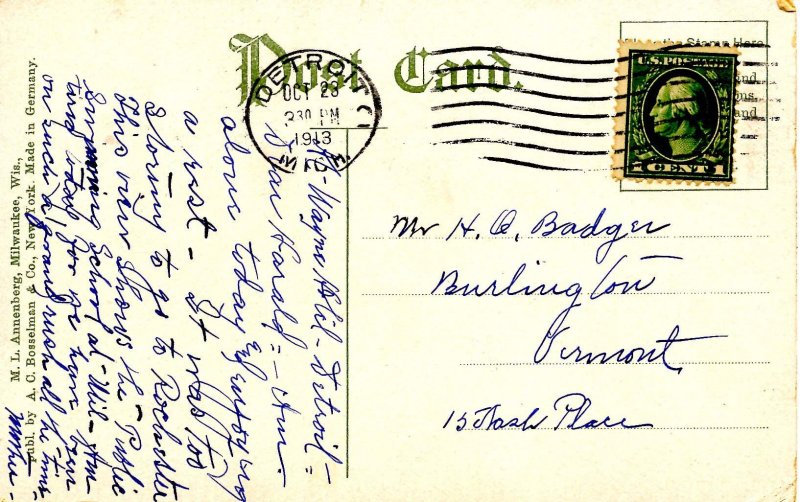 Post Card.
DETROIT
OCT 23
3 30 PM
1913
MICH.
Place the Stamp Here
U.S. POSTAGE
1 CENT 1
Mr H. A. Badger
Burlington
Vermont
15 Nash Place
Ft-Wayne Hotel-Detroit=
Dear Harald=-Am
alone today & enjoying
a rest- It was too
stormy to go to Rochester
This view shows the Public
School at Mil- Am
today for we have been
on such a grand rush all the time-
Mother-
M. L. Annenberg, Milwaukee, Wis.,
Publ. by A. C. Bosselman & Co., New York. Made in Germany.